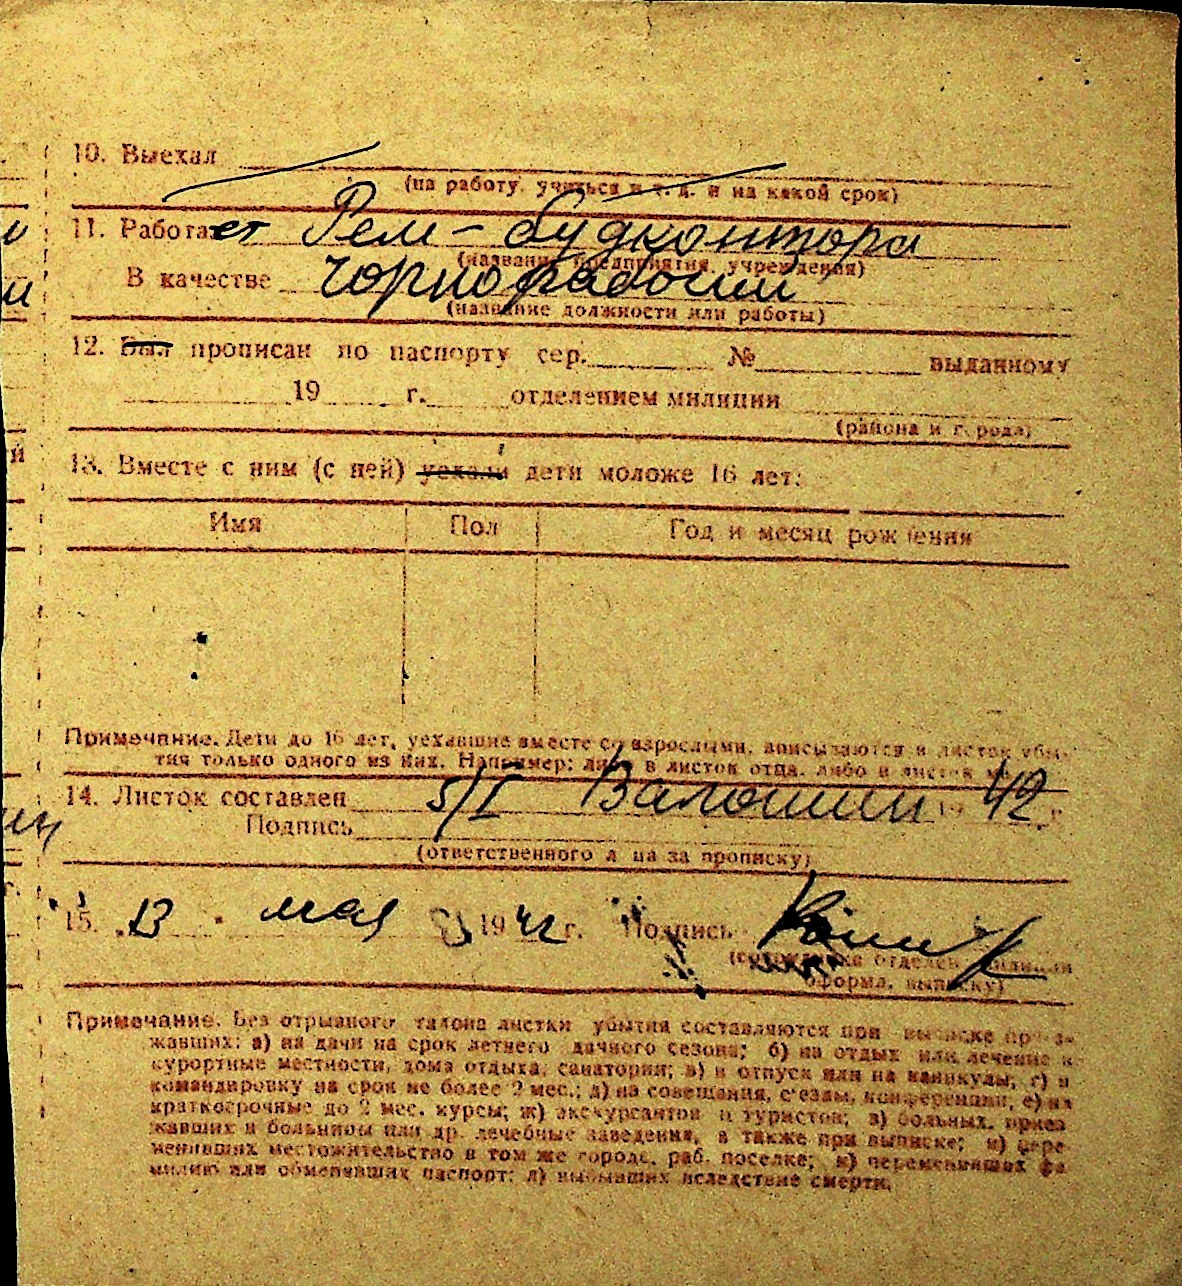 10. Выехал
(на работу, учиться и т. д. и на какой срок)
11. Работает Рем-будконтора
(название предприятия, учреждения)
В качестве чорнорабочий
(название должности или работы)
12. Был прописан по паспорту сер. № выданному
19 г. отделением милиции
(района и города)
13. Вместе с ним (с ней) уехали дети моложе 16 лет:
Имя Пол Год и месяц рождения
Примечание. Дети до 16 лет, уехавшие вместе со взрослыми, вписываются в листок убы-
тия только одного из них. Например: либо в листок отца, либо в листок
14. Листок составлен 5/I Валошин 19 42 г.
Подпись
(ответственного лица за прописку)
15. 13 мая 1942 г. Подпись
(сотрудника отделен. милиции
оформл. выписку)
Примечание. Без отрывного талона листки убытия составляются при выписке прое-
жавших: а) на дачи на срок летнего дачного сезона; б) на отдых или лечение в
курортные местности, дома отдыха, санатории; в) в отпуск или на каникулы; г) в
командировку на срок не более 2 мес.; д) на совещания, съезды, конференции; е) на
краткосрочные до 2 мес. курсы; ж) экскурсантов и туристов; з) больных, приез
жавших в больницы или др. лечебные заведения, а также при выписке; и) пере
менивших местожительство в том же городе, раб. поселке; к) переменивших фа
милию или обменявших паспорт; л) выбывших вследствие смерти.